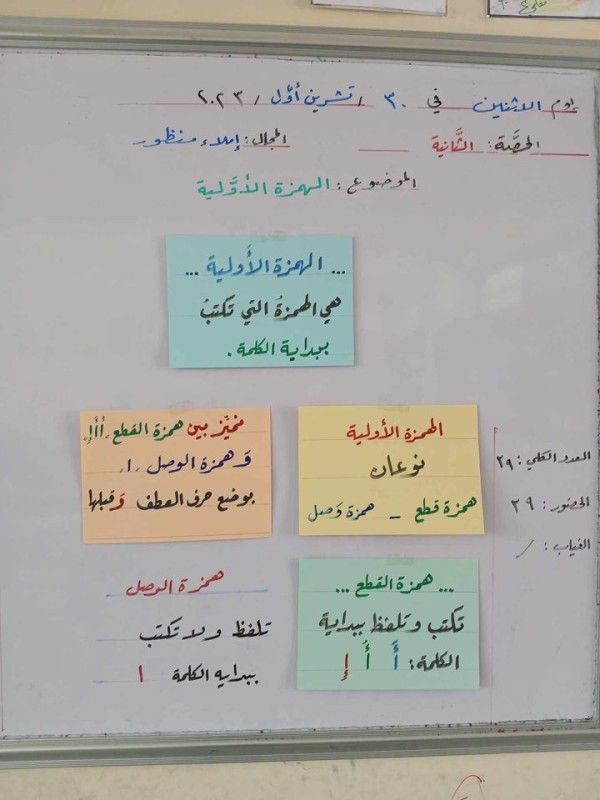 يوم الاثنين في ٣٠ / تشرين أوّل / ٢٠٢٣
الحصَّة: الثَّانية
المجال: إملاء منظور
الموضوع: الهمزة الأوَّلية
... الهمزة الأَولية ...
هي الهمزةُ التي تكتبُ
ببداية الكلمة.
الهمزة الأولية
نوعان
همزة قطع - همزة وَصل
نميّز بين همزة القطع "أُأَإِ"
وَهمزة الوصل "ا"
بوضع حرف العطف وَ قبلها
العدد الكلي: ٢٩
الحضور: ٢٩
الغياب: /
... همزة القطع ...
تكتب وتلفظ ببداية
الكلمة: أَ أُ إِ
همزة الوصل
تلفظ ولا تكتب
ببدايه الكلمة ا